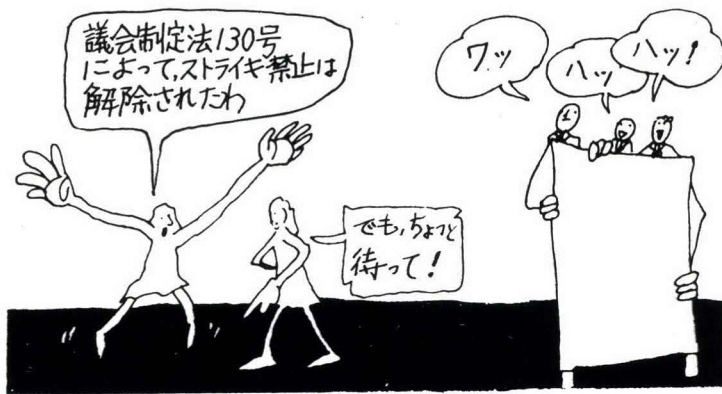 議会制定法130号
によって,ストライキ禁止は
解除されたわ
でも,ちょっと
待って!
ワッ
ハッ
ハッ!